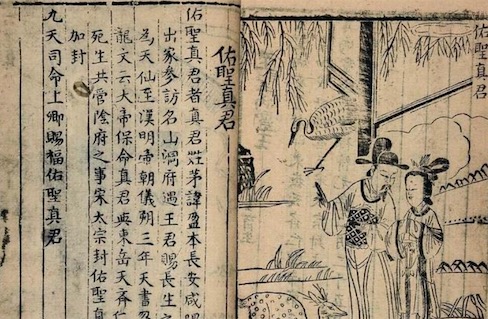 佑聖真君
佑聖真君
佑聖真君者真君姓茅諱盈本長安咸
出家參訪名山洞府遇王君賜長生之
為天仙至漢明帝朝儀朔三年天書
龍文云大帝保命真君與東岳天齊仁
死生共管陰府之事宋太宗封佑聖真
加封
九天司命上卿賜福佑聖真君